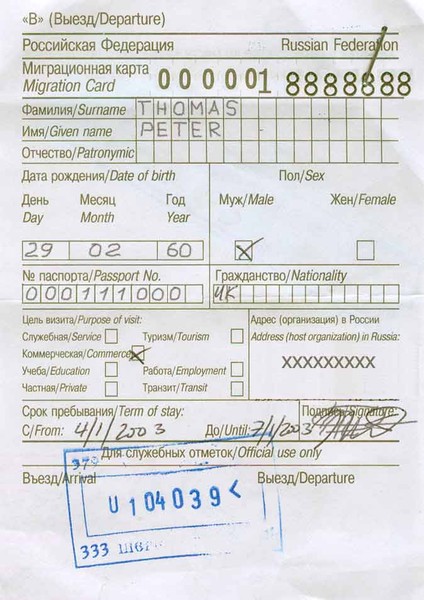 «В» (Выезд/Departure)
Российская Федерация Russian Federation
Миграционная карта
Migration Card
000001 8888888
Фамилия/Surname THOMAS
Имя/Given name PETER
Отчество/Patronymic
Дата рождения/Date of birth Пол/Sex
День Месяц Год Муж/Male Жен/Female
Day Month Year
29 02 60 X
№ паспорта/Passport No. Гражданство/Nationality
000111000 UK
Цель визита/Purpose of visit: Адрес (организация) в России
Служебная/Service Туризм/Tourism Address (host organization) in Russia:
Коммерческая/Commerce X XXXXXXXXX
Учеба/Education Работа/Employment
Частная/Private Транзит/Transit
Срок пребывания/Term of stay: Подпись/Signature:
С/From: 4/1/2003 До/Until: 7/1/2003
Для служебных отметок/Official use only
Въезд/Arrival Выезд/Departure
U 1 04039 <
333